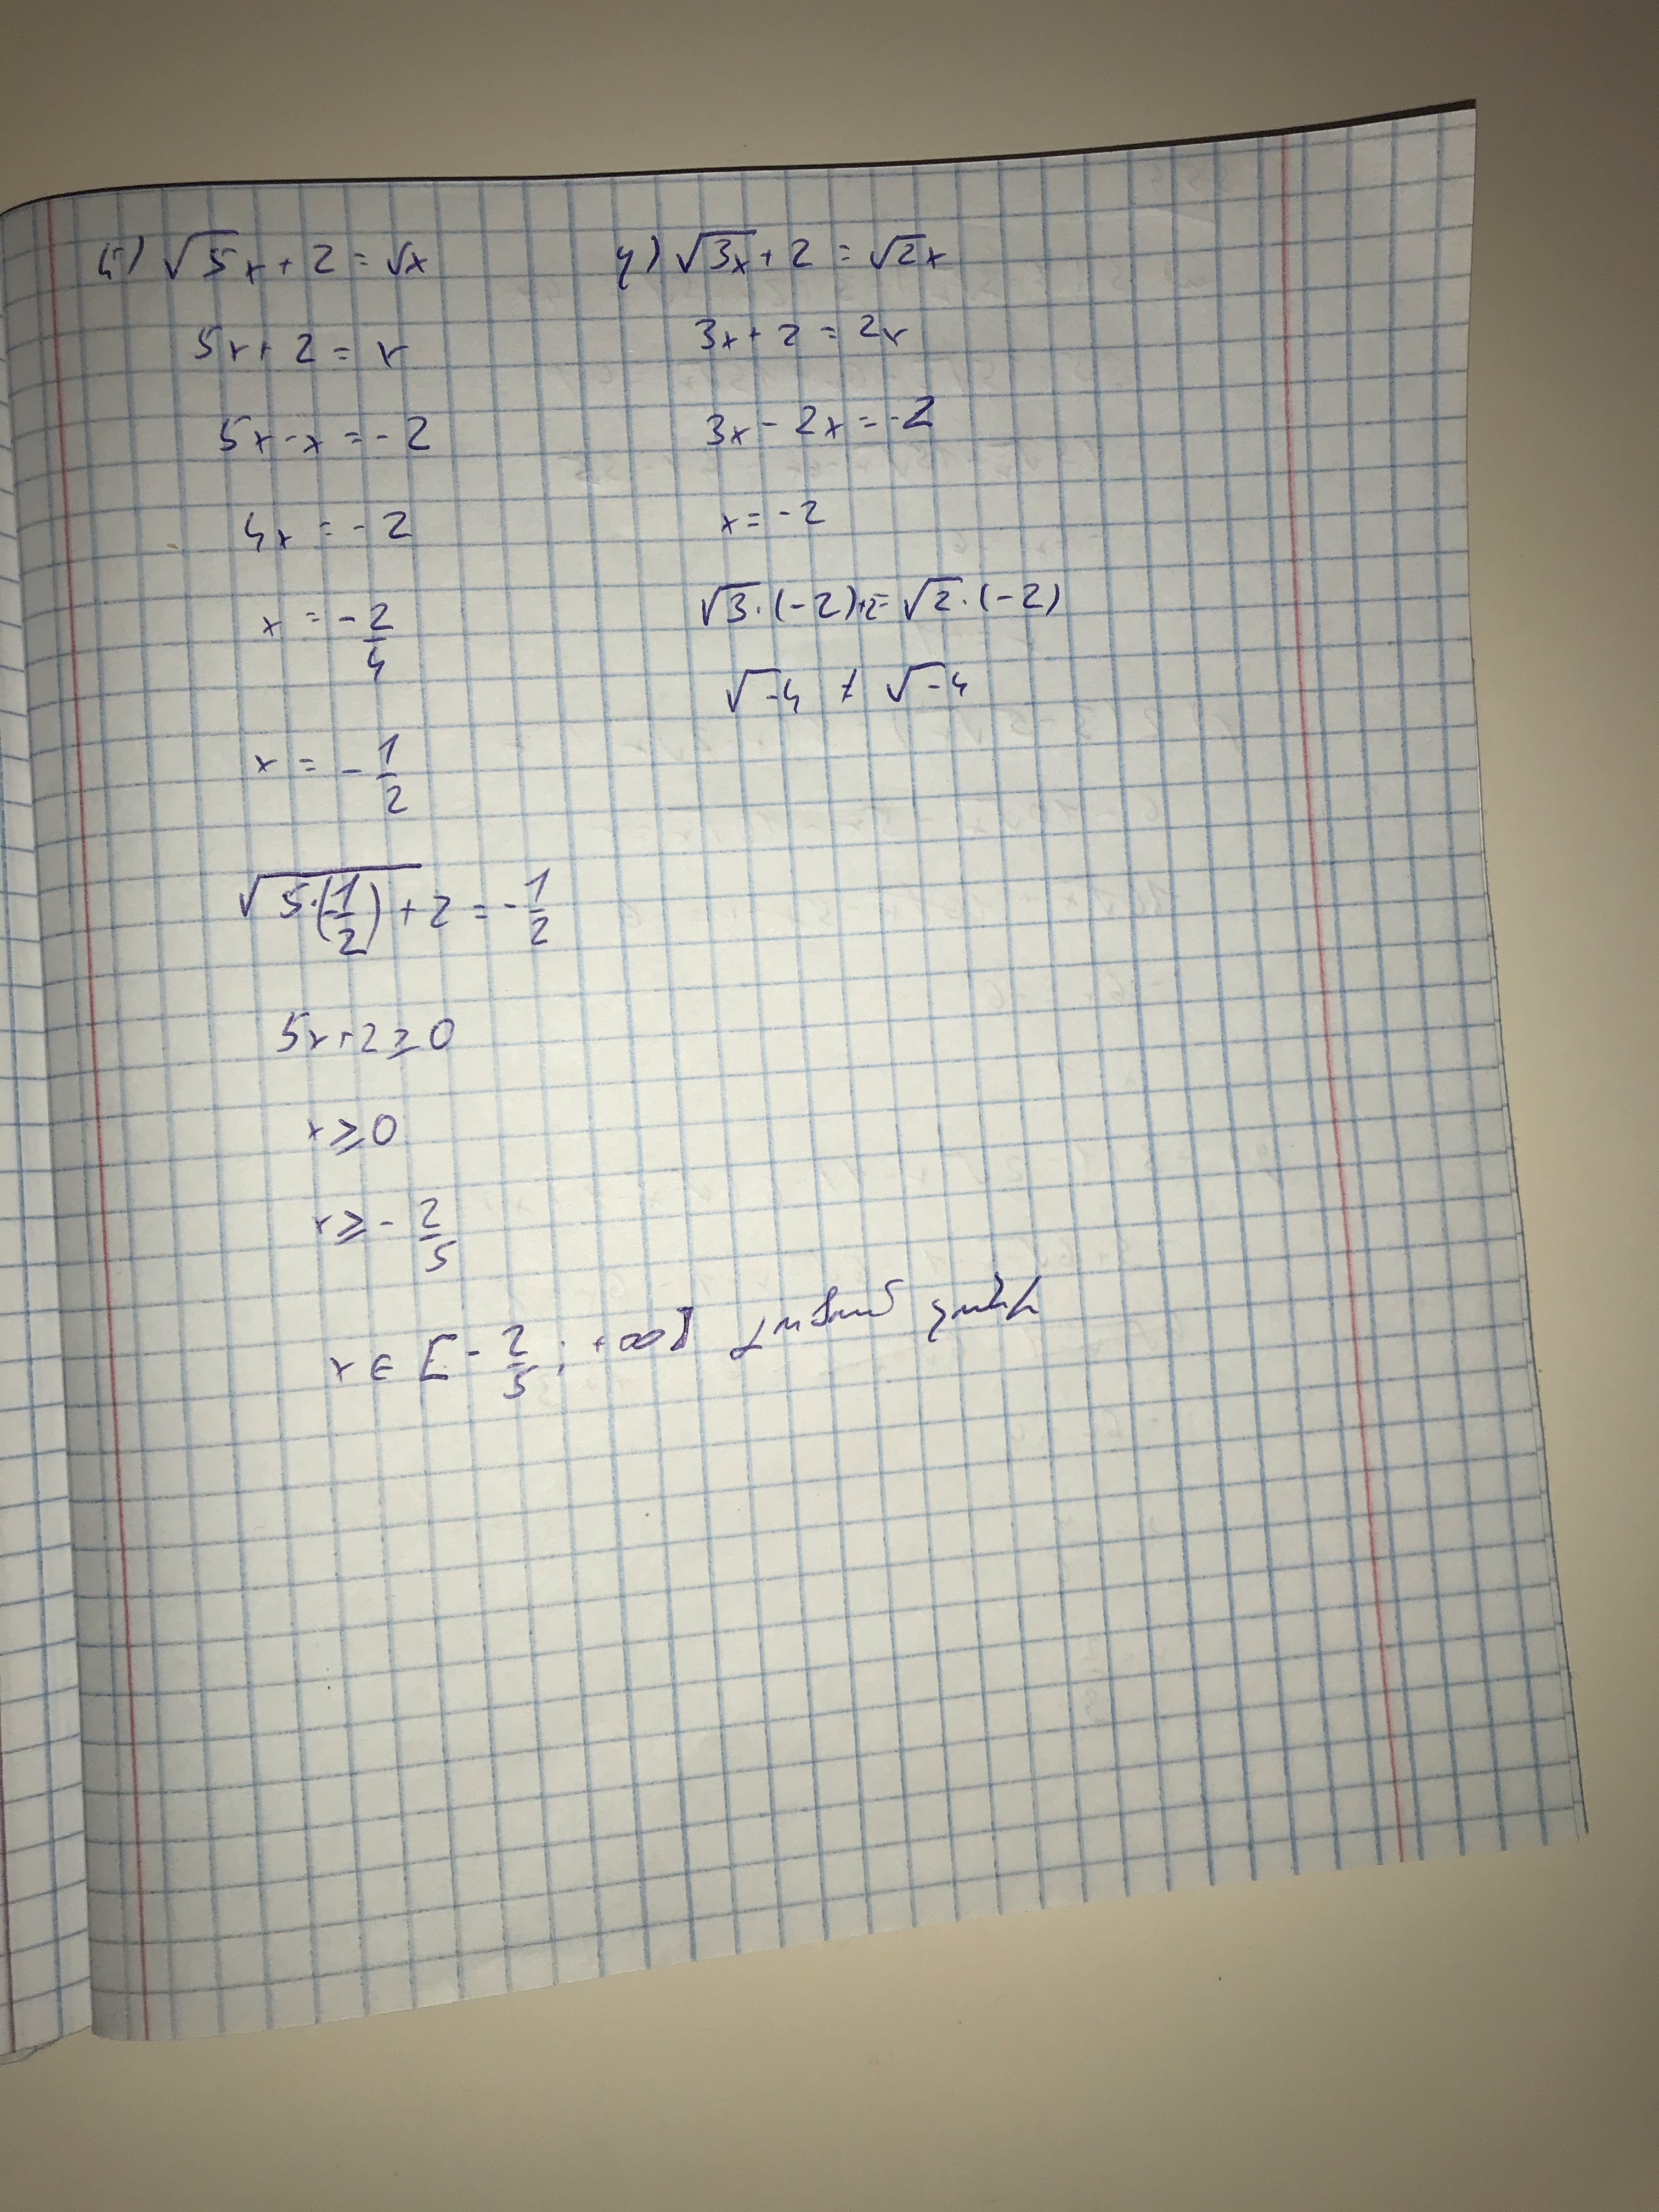 ա) √5x + 2 = √x
5x + 2 = x
5x - x = -2
4x = -2
x = -2/4
x = -1/2
√5·(-1/2) + 2 = -1/2
5x + 2 ≥ 0
x ≥ 0
x ≥ -2/5
x ∈ [-2/5; +∞] լուծում չունի
գ) √3x + 2 = √2x
3x + 2 = 2x
3x - 2x = -2
x = -2
√3·(-2)+2 = √2·(-2)
√-4 ≠ √-4